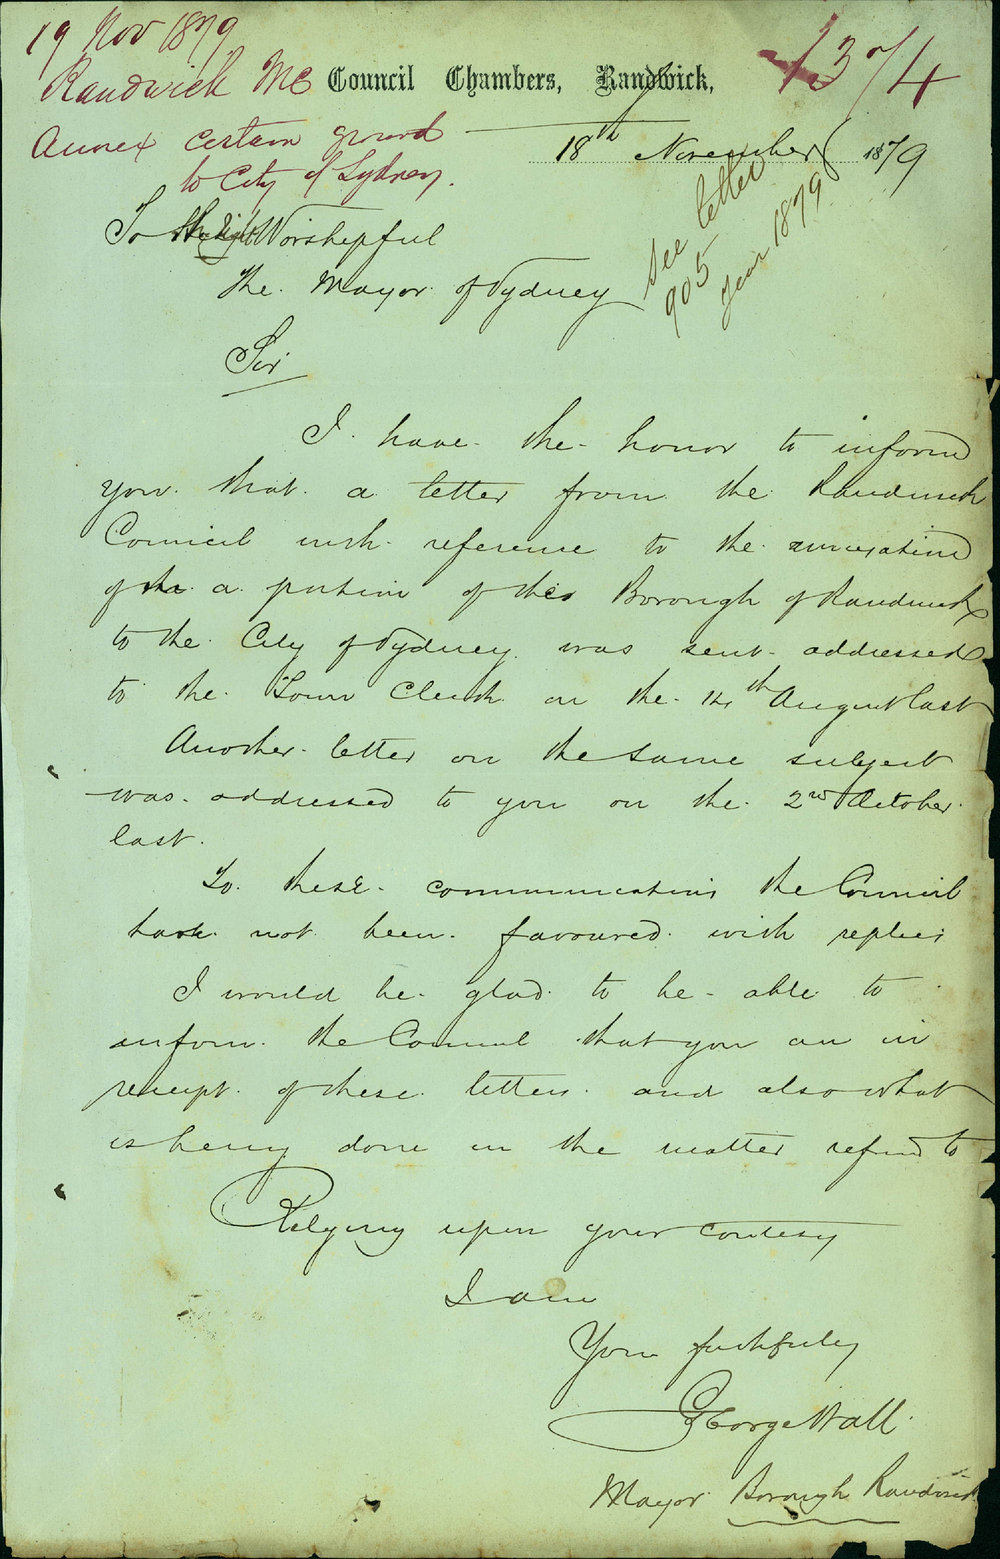 19 Nov 1879
Randwick MC
Annex certain ground
to City of Sydney.
1374
Council Chambers, Randwick,
18th November 1879
See letter
905
Year 1879
To the Right Worshipful
The Mayor of Sydney
Sir
I have the honor to inform
you that a letter from the Randwick
Council with reference to the annexation
of the a portion of this Borough of Randwick
to the City of Sydney was sent addressed
to the Town Clerk on the 14th August last
Another letter on the same subject
was addressed to you on the 2nd October
last.
To these communications the Council
have not been favoured with replies
I would be glad to be able to
inform the Council that you are in
receipt of these letters and also what
is being done in the matter referred to
Relying upon your courtesy
I am
Yours faithfully
George Wall
Mayor Borough Randwick